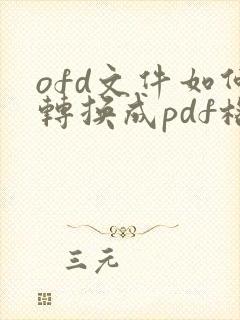 ofd文件如何
轉換成pdf格
三元